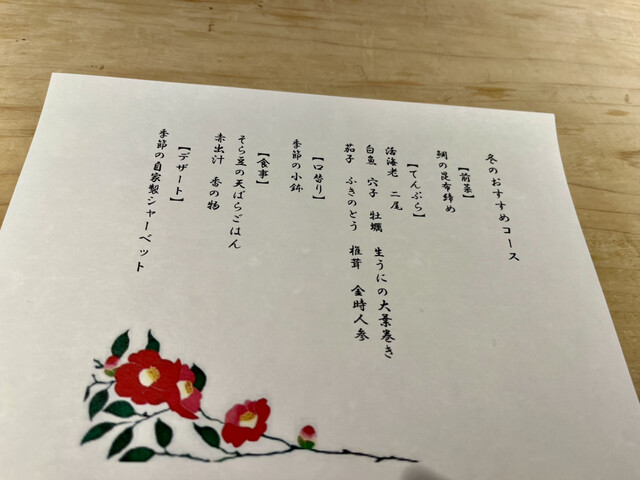 冬のおすすめコース
【前菜】
鯛の昆布締め
【てんぷら】
活海老 二尾
白魚 穴子 牡蠣 生うにの大葉巻き
茄子 ふきのとう 椎茸 金時人参
【口替り】
季節の小鉢
【食事】
そら豆の天ばらごはん
赤出汁 香の物
【デザート】
季節の自家製シャーベット